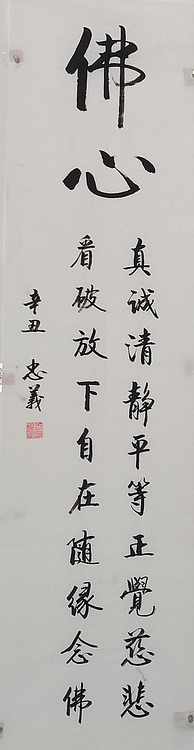 佛心
真诚清静平等正覺慈悲
看破放下自在随缘念佛
辛丑 忠義